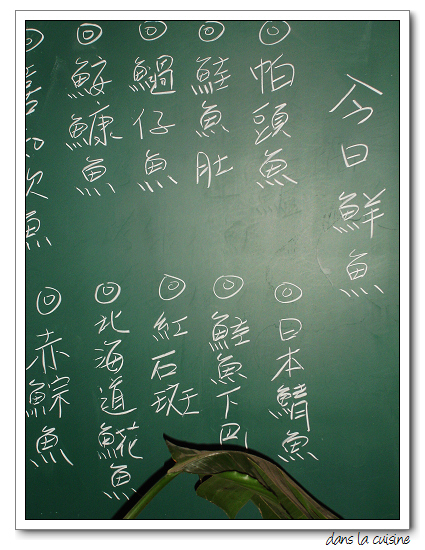 今日鮮魚
◎帕頭魚
◎鮭魚肚
◎仔魚
◎鮟鱇魚
◎喜知次魚
◎日本鯖魚
◎鮭魚下巴
◎紅石斑
◎北海道魚
◎赤鯮魚
dans la cuisine